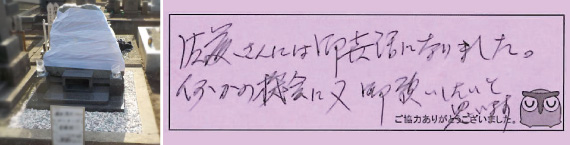 佐藤さんには御世話になりました。
何かの機会に又御願いしたいと
思います
ご協力ありがとうございました。